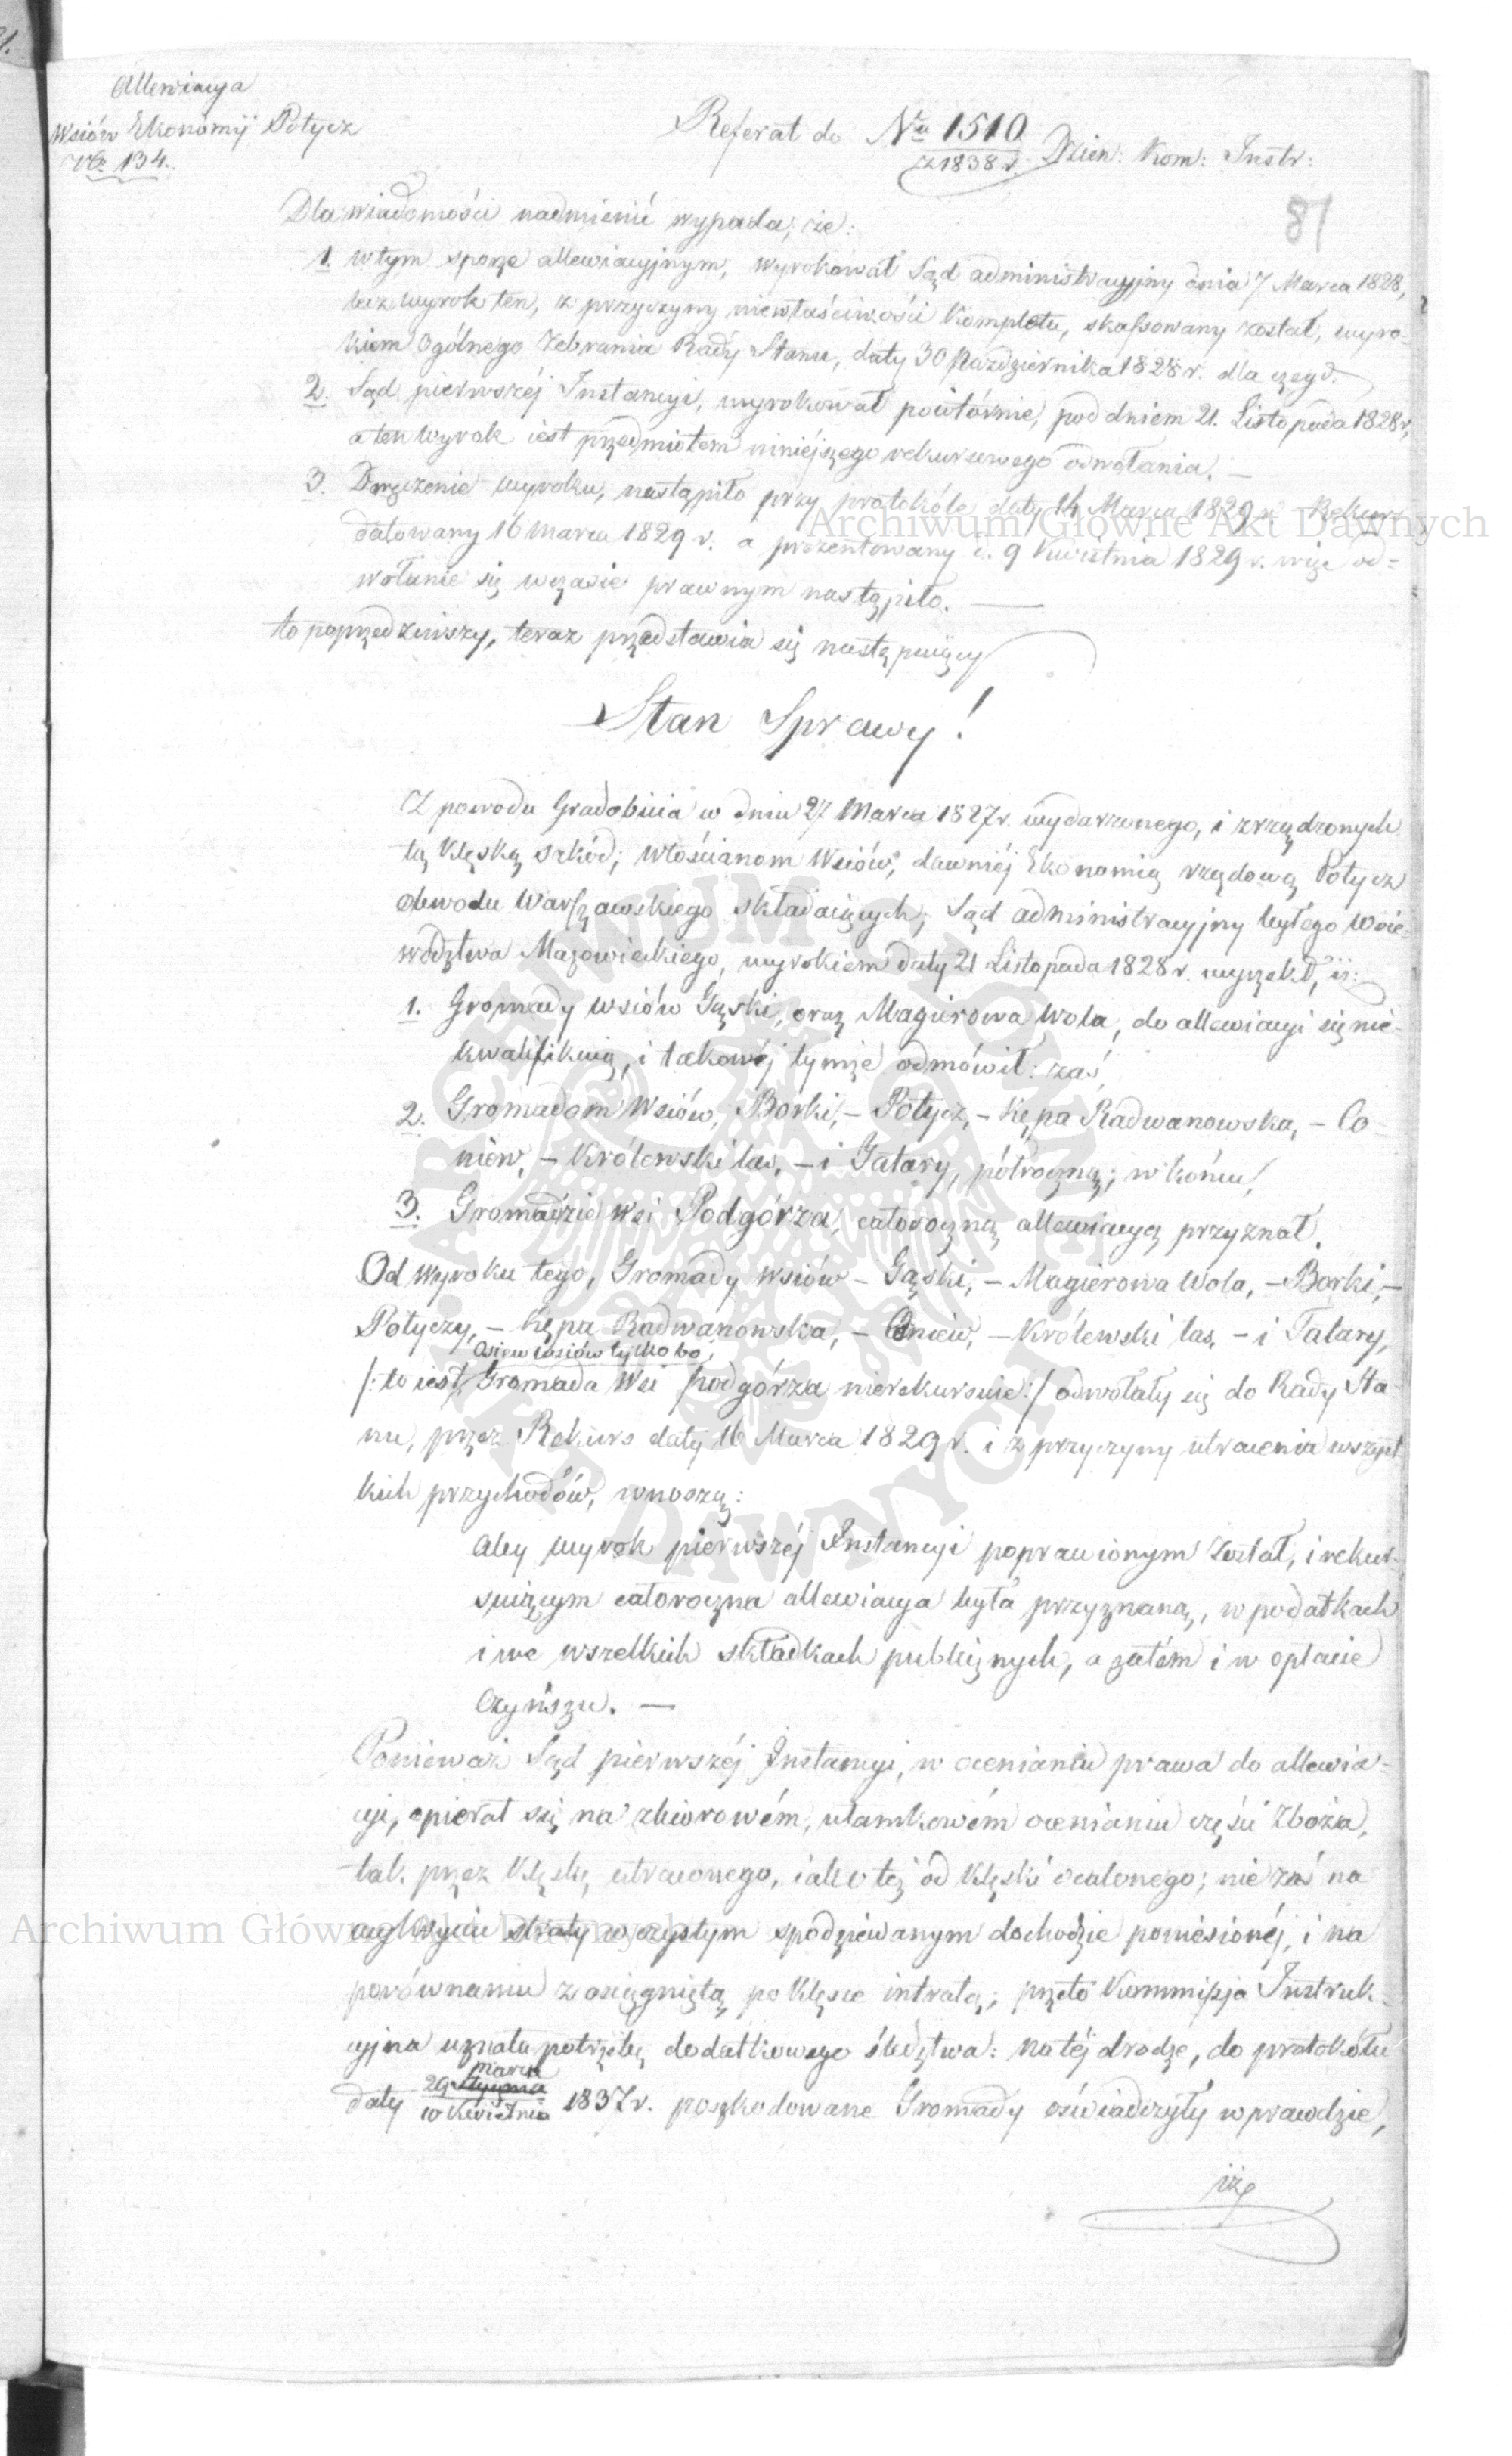 Allewiacya
Wsiów Ekonomij Potycz
No 134.
Referat do Nru 1510 z 1838 r. Dzien: Kom: Instr:
81
Dla wiadomości nadmienić wypada, że:
1. w tym sporze allewiacyjnym, wyrokował Sąd administracyjny dnia 7 Marca 1828,
lecz wyrok ten, z przyczyny niewłaściwości kompletu, skassowany został, wyro-
kiem Ogólnego Zebrania Rady Stanu, daty 30 Października 1828 r. dla czego.
2. Sąd pierwszéj Instancyi, wyrokował powtórnie, pod dniem 21. Listopada 1828 r,
a ten wyrok iest przedmiotem niniejszego rekursowego odwołania. —
3. Doręczenie wyroku, nastąpiło przy protokóle daty 14 Marca 1829 r. Rekurs
datowany 16 Marca 1829 r. a prezentowany d. 9 Kwietnia 1829 r. więc od=
wołanie się w czasie prawnym nastąpiło. —
to poprzedziwszy, teraz przedstawia się następuiący
Stan Sprawy!
Z powodu Gradobicia w dniu 27 Marca 1827 r. wydarzonego, i zrządzonych
tą klęską szkód; włościanom Wsiów, dawniéj Ekonomią rządową Potycz
obwodu Warszawskiego składaiących, Sąd administracyjny byłego Woie-
wództwa Mazowieckiego, wyrokiem daty 21 Listopada 1828 r. wyrzekł, iż:
1. Gromady wsiów Gąski, oraz Magierowa Wola, do allewiacyi się nie-
kwalifikuią, i takowéj tymże odmówił: zaś,
2. Gromadom Wsiów, Borki, – Potycz, – Kępa Radwanowska, – Co-
niew, – Królewski las, – i Tatary, półroczną; w końcu,
3. Gromadzie wsi Podgórza, całoroczną allewiacyą przyznał.
Od wyroku tego, Gromady wsiów – Gąski, – Magierowa Wola, – Borki, –
Potyczy, – Kępa Radwanowska, – Coniew, – Królewski las, – i Tatary,
ośiem wsiów tylko bo,
/: to iest, Gromada Wsi podgórza nierekursuie :/ odwołały się do Rady Sta-
nu, przez Rekurs daty 16 Marca 1829 r. i z przyczyny utracenia wszyst-
kich przychodów, wnoszą:
aby wyrok pierwszéj Instancyi poprawionym został, i rekur-
suiącym całoroczna allewiacya była przyznaną, w podatkach
i we wszelkich składkach publicznych, a zatém i w opłacie
Czynszu. —
Ponieważ Sąd pierwszéj Instancyi, w ocenianiu prawa do allewia=
cyi, opierał się na zbiorowém, ułamkowém ocenianiu części Zboża,
tak przez klęskę utraconego, iako też od klęski ocalonego; nie zaś na
wykryciu straty w czystym spodziewanym dochodzie poniesionéj, i na
porównaniu z osiągniętą po klęsce intratą; przeto Kommissja Instruk-
cyjna uznała potrzebę dodatkowego śledztwa: na téj drodze, do protokółu
daty 29 Stycznia Marca / 10 Kwietnia 1837 r. poszkodowane Gromady oświadczyły wprawdzie,
iż